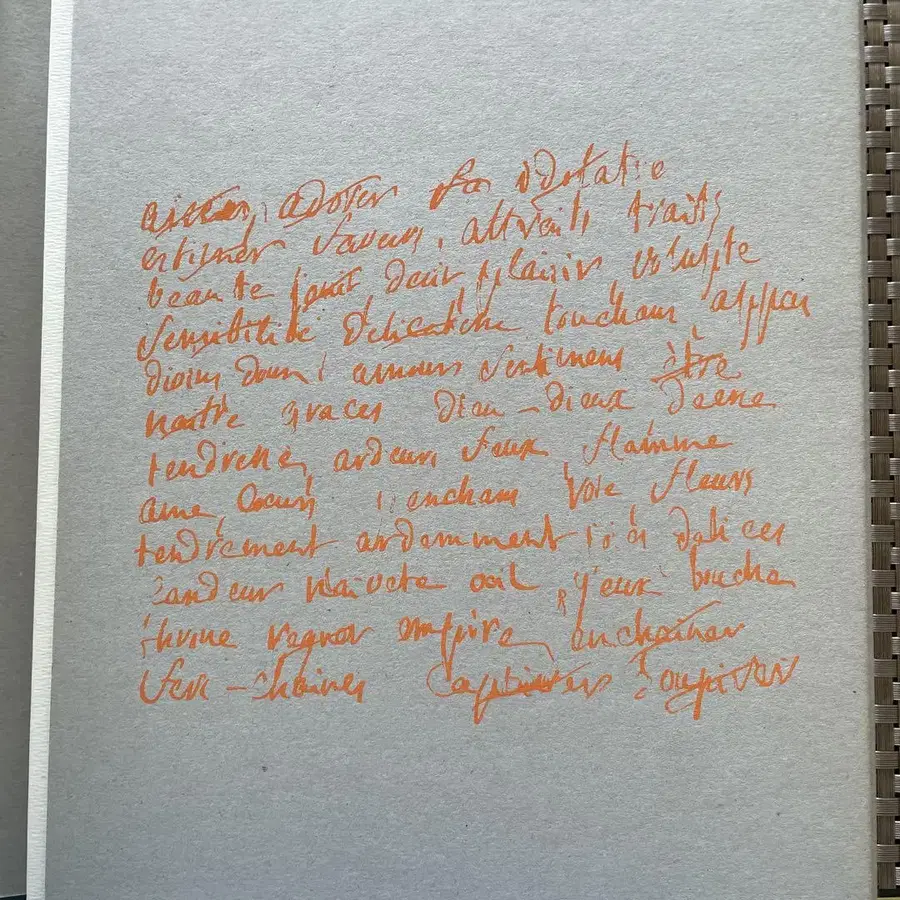 aimer, adorer idolatrie
estimer faveurs, attraits traits
beauté jouir desir, plaisir, volupté
sensibilité délicatesse touchans appas
divins doux amours sentimens être
naître graces dieu - dieux déesse
tendresse, ardeurs feux flamme
ame, coeurs voie fleurs
tendrement ardemment délices
candeur naiveté oeil, yeux bouche
throne regner empire, enchaîner
fers - chaines captiver soupirer